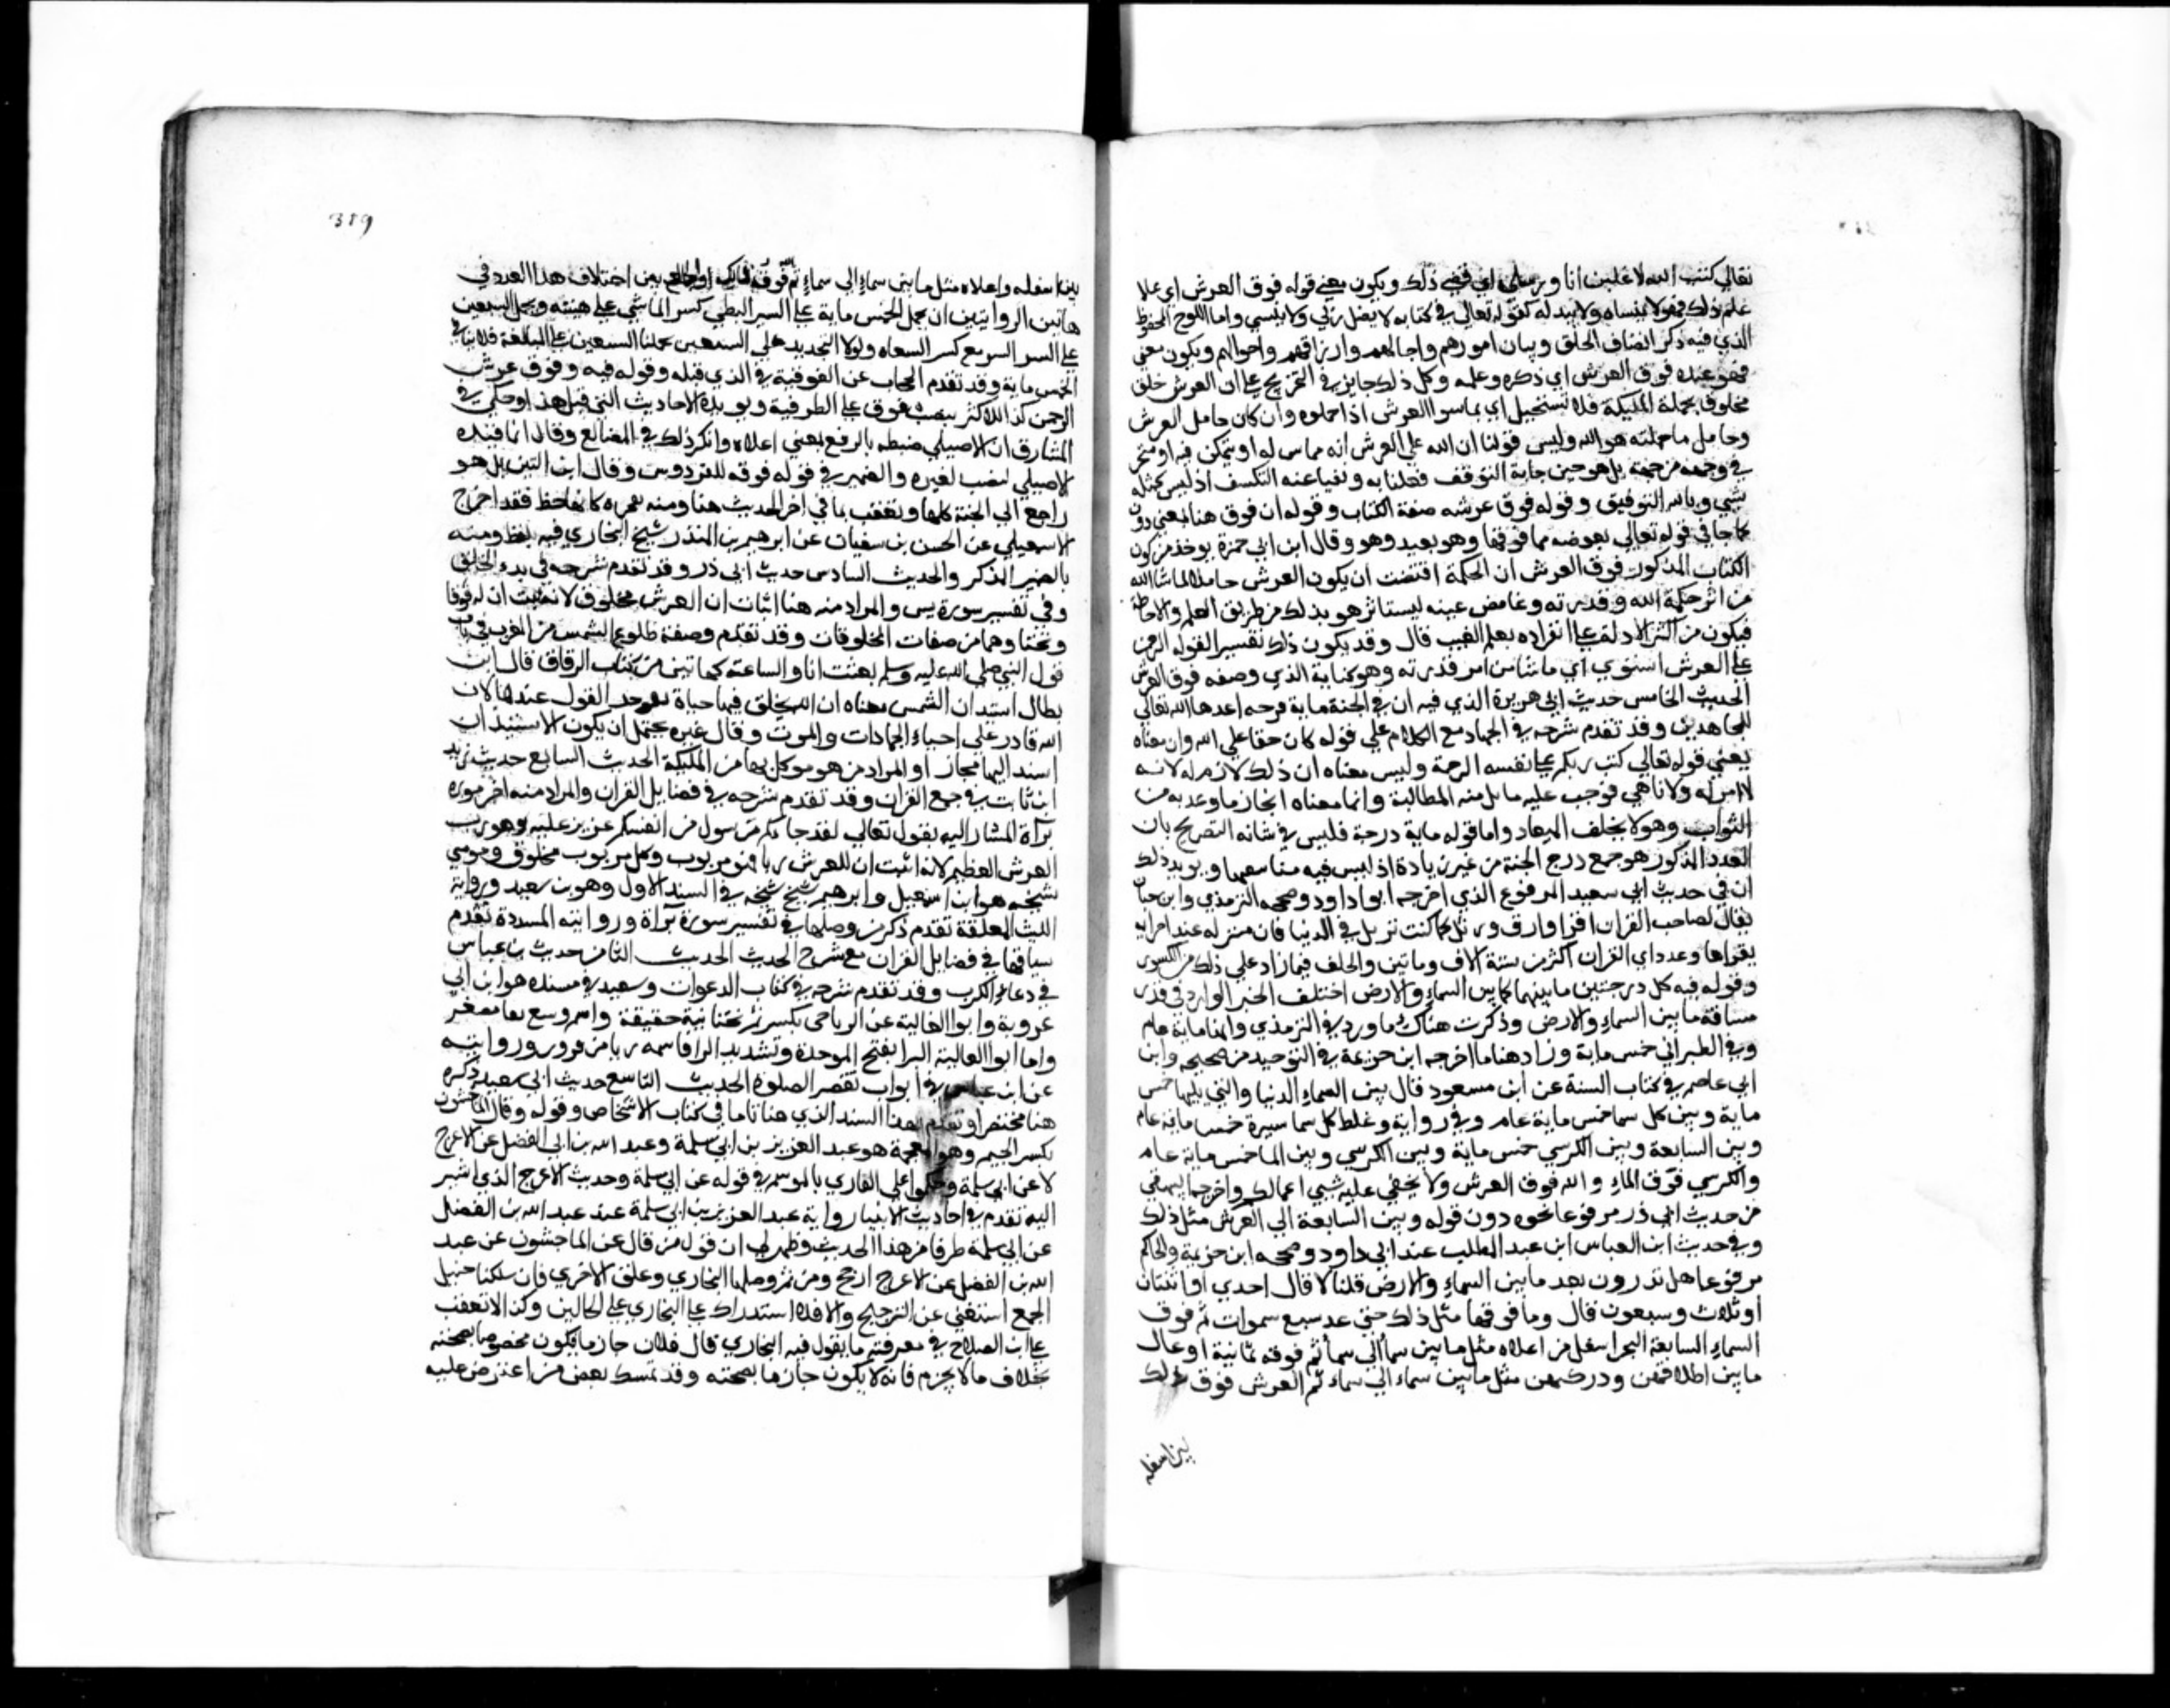 تعالي كتب الله لاغلبن انا ورسلي اي قضي ذلك ويكون معني قوله فوق العرش اي علا
علم ذلك فهو لا ينساه ولا يبدله كقوله تعالي في كتابه لا يضل ربي ولا ينسي واما اللوح المحفوظ
الذي فيه ذكر اصناف الخلق وبيان امورهم واجالهم وارزاقهم واحوالهم ويكون معني
فهو عنده فوق العرش اي ذكره وعلمه وكل ذلك جايز في التخريج علي ان العرش خلق
مخلوق بحملة المليكة فلا تستحيل اي يماسوا العرش اذا حملوه وان كان حامل العرش
وحامل ما حملته هو الله وليس قولنا ان الله علي العرش انه مماس له او يتمكن فيه او متحيز
في وجهه من جهة بل هو حين جاية التوقف فقلنا به ونفيا عنه التكسف اذ ليس كمثله
شي وبالله التوفيق وقوله فوق عرشه صفة الكتاب وقوله ان فوق هنا بمعني دون
كما جا في قوله تعالي بعوضه فما فوقها وهو بعيد وهو وقال ابن ابي حمزة يوخذ من كون
الكتاب المذكور فوق العرش ان الحكمة اقتضت ان يكون العرش حاملا لما شا الله
من اثر حكمة الله وقدرته وغامض عينه ليستاثر هو بذلك من طريق العلم والاحاطة
فيكون من اكثر الادلة علي انفراده بعلم الغيب قال وقد يكون ذلك تفسير القوله الرحمن
علي العرش استوي اي ما شا من امر قدرته وهو كناية الذي وصفه فوق العرش
الحديث الخامس حديث ابي هريرة الذي فيه ان في الجنة ماية درجه اعدها الله تعالي
للمجاهدين وقد تقدم شرحه في الجهاد مع الكلام علي قوله كان حقا علي الله وان معناه
يعني قوله تعالي كتب ربكم علي نفسه الرحمة وليس معناه ان ذلك لازم له لانه
لا امر له ولا ناهي فوجب عليه ما يلزمه المطالبة وانما معناه انجاز ما وعد به من
الثواب وهو لا يخلف الميعاد واما قوله ماية درجة فليس في شانه التصريح بان
العدد المذكور هو جمع درج الجنة من غير زيادة اذ ليس فيه ما ينفيها ويويد ذلك
ان في حديث ابي سعيد المرفوع الذي اخرجه ابوا داود وصححه الترمذي وابن حبان
يقال لصاحب القران اقرا وارق ورتل كما كنت ترتل في الدنيا فان منزله عند اخر ايه
يقراها وعدد اي القران اكثر من ستة الاف وماتين والخلف فيما زاد علي ذلك من الكسور
وقوله فيه كل درجتين ما بينهما كما بين السماء والارض اختلف الخبر الوارد في قدر
مسافة ما بين السماء والارض وذكرت هناك ما ورد في الترمذي وانها ماية عام
وفي الطبراني خمس ماية وزاد هنا ما اخرجه ابن خزيمة في التوحيد من صحيحه وابن
ابي عاصم في كتاب السنة عن ابن مسعود قال بين السماء الدنيا والتي يليها خمس
ماية وبين كل سما خمس ماية عام وفي رواية وغلظ كل سما سيرة خمس ماية عام
وبين السابعة وبين الكرسي خمس ماية وبين الكرسي وبين الما خمس ماية عام
والكرسي فوق الماء والله فوق العرش ولا يخفي عليه شيي اعمالكم واخرجه البيهقي
من حديث ابي ذر مرفوعا نحوه دون قوله وبين السابعة الي العرش مثل ذلك
وفي حديث ابن العباس ابن عبد المطلب عند ابي داود وصححه ابن خزيمة والحاكم
مرفوعا هل تدرون بعد ما بين السماء والارض قلنا لا قال احدي او اثنتان
او ثلاث وسبعون قال وما فوقها مثل ذلك حتي عد سبع سموات ثم فوق
السماء السابعة البحر اسفل من اعلاه مثل ما بين سما الي سما ثم فوقه ثمانية اوعال
ما بين اظلافهن وركبهن مثل ما بين سماء الي سماء ثم العرش فوق ذلك
بين اسفله
389
بين اسفله واعلاه مثل ما بين سماء الي سماء ثم الله فوق ذلك والجمع بين اختلاف هذا العدد في
هاتين الروايتين ان يحمل الخمس ماية علي السير البطي كسير الماشي علي هينته ويحمل السبعين
علي السير السريع كسير السعاه ولولا التحديد علي السبعين حملنا السبعين علي المبالغة فلا ينافي
الخمس ماية وقد تقدم الجواب عن الفوقية في الذي قبله وقوله فيه وفوق عرش
الرحمن كذا للاكثر بنصب فوق علي الظرفية ويويده الاحاديث التي قبل هذا وحكي في
المشارق ان الاصيلي ضبطه بالرفع بمعني اعلاه وانكر ذلك في المطالع وقال انما قيده
الاصيلي بنصب لغيره والضمير في قوله فوقه للفردوس وقال ابن التين بل هو
راجع الي الجنة كلها وتعقب بما في اخر الحديث هنا ومنه تفجر انهار الجنة فقد اخرج
الاسمعيلي عن الحسن بن سفيان عن ابرهيم بن المنذر شيخ البخاري فيه بلفظ ومنه
بالضمير المذكر والحديث السادس حديث ابي ذر وقد تقدم شرحه في بدء الخلق
وفي تفسير سورة يس والمراد منه هنا اثبات ان العرش مخلوق لانه ثبت ان له فوقا
وتحتا وهما من صفات المخلوقات وقد تقدم وصفة طلوع الشمس من المغرب في باب
قول النبي صلي الله عليه وسلم بعثت انا والساعة كهاتين من كتاب الرقاق قال ابن
بطال استيذان الشمس معناه ان الله يخلق فيها حياة يوجد القول عندها لان
الله قادر علي احياء الجمادات والموت وقال غيره يحتمل ان يكون الاستيذان
اسند اليها مجاز او المراد من هو موكل بها من المليكة الحديث السابع حديث زيد
ابن ثابت في جمع القران وقد تقدم شرحه في فضايل القران والمراد منه اخر سورة
براة المشار اليه بقوله تعالي لقد جاكم رسول من انفسكم عزيز عليه وهو رب
العرش العظيم لانه اثبت ان للعرش ربا فهو مربوب وكل مربوب مخلوق وموسي
شيخه هو ابن اسمعيل وابرهيم شيخ شيخه في السند الاول وهو بن سعد ورواية
الليث المعلقة تقدم ذكر من وصلها في تفسير سورة براة وروايته المسندة تقدم
سياقها في فضايل القران مع شرح الحديث الحديث الثامن حديث بن عباس
في دعاء الكرب وقد تقدم شرحه في كتاب الدعوات وسعيد في مسنده هو ابن ابي
عروبة وابوا العالية عن الرياحي بكسر ثم تحتانية خفيفة واسمه رفيع بفا مصغر
واما ابوا العالية البرا بفتح الموحدة وتشديد الرا فاسمه زياد بن فيروز وروايته
عن ابن عباس في ابواب تقصير الصلوة الحديث التاسع حديث ابي سعيد ذكره
هنا مختصرا وتقدم بهذا السند الذي هنا تاما في كتاب الاشخاص وقوله وقال الماجشون
بكسر الجيم وهو المعجمة هو عبد العزيز بن ابي سلمة وعبد الله بن ابي الفضل عن الاعرج
لا عن ابي سلمة وحكموا علي القاري بالوهم في قوله عن ابي سلمة وحديث الاعرج الذي اشير
اليه تقدم في احاديث الانبيا رواية عبد العزيز بن ابي سلمة عند عبد الله بن الفضل
عن ابي سلمة طرفا من هذا الحديث وظهر لي ان قول من قال عن الماجشون عن عبد
الله بن الفضل عن الاعرج ارجح ومن ثم وصلها البخاري وعلق الاخري فان سلكنا سبيل
الجمع استغني عن الترجيح والا فلا استدراك علي البخاري علي الحالين وكذا لا تعقب
علي ابن الصلاح في معرفته ما يقول فيه البخاري قال فلان جازما فيكون محكوما بصحته
بخلاف ما لا يجزم فانه لا يكون جازما بصحته وقد تمسك بعض من اعترض عليه